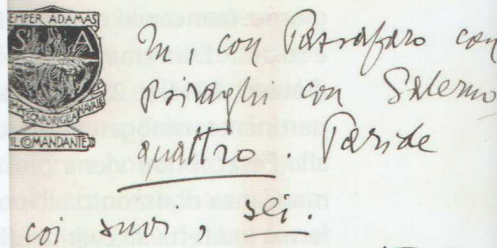 SEMPER ADAMAS
S A
SQUADRIGLIA NAVALE
IL COMANDANTE
Tu, con Passafaro con
Biraghi con Salerno
quattro. Paride
coi suoi, sei.